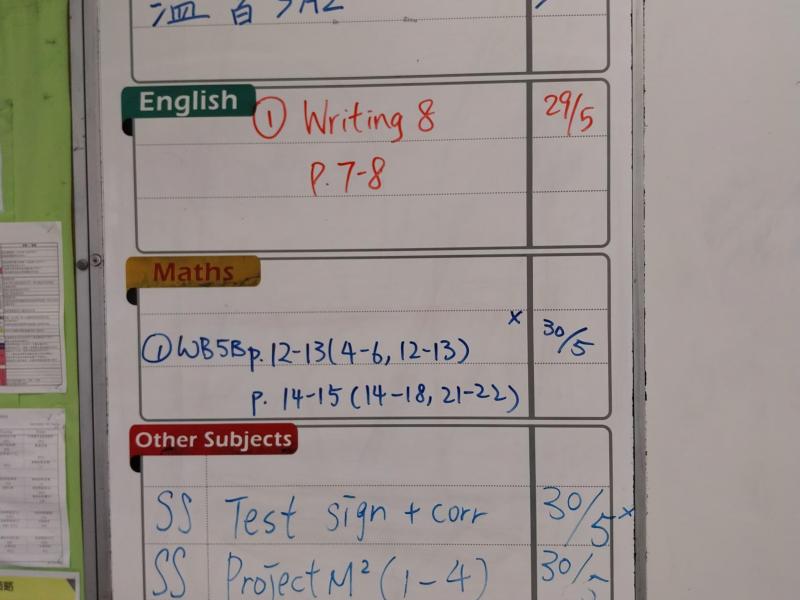 溫習
English
① Writing 8 29/5
P. 7-8
Maths
① WB5B p. 12-13 (4-6, 12-13) x 30/5
p. 14-15 (14-18, 21-22)
Other Subjects
SS Test sign + corr 30/5 x
SS Project M² (1-4) 30/5